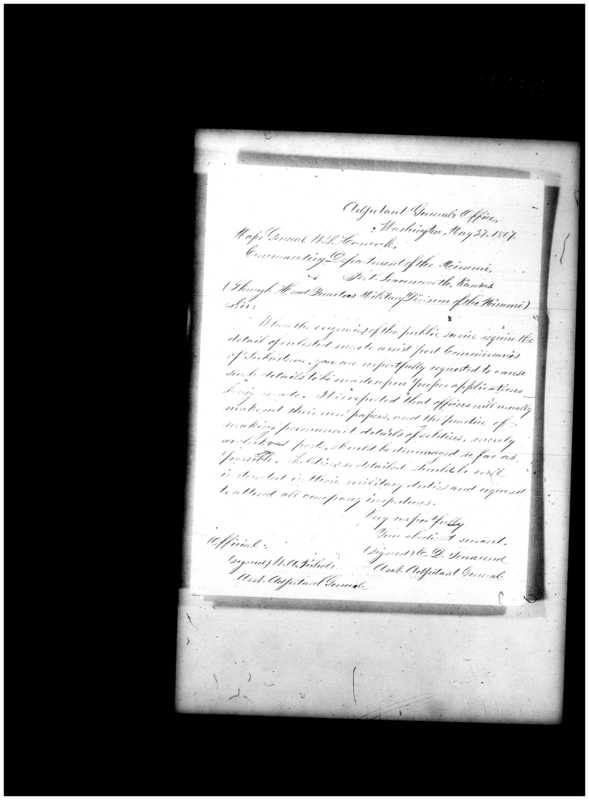 Adjutant General's Office,
Washington, May 27. 1867.
Maj. General W. S. Hancock,
Commanding Department of the Missouri,
Fort Leavenworth, Kansas
(Through Head Quarters Military Division of the Missouri)
Sir:
When the exigencies of the public service require the
detail of enlisted men to assist post Commissaries
of Subsistence, you are respectfully requested to cause
such details to be made upon proper applications
being made. It is expected that officers will usually
make out their own papers, and the practice of
making permanent details of soldiers, merely
as at post, should be discouraged so far as
possible. Soldiers so detailed should be well
in their military duties and required
to attend all company inspections.
Very respectfully
Your obedient servant.
(signed) E. D. Townsend
Asst. Adjutant General.
Official:
(signed) W. A. Nichols
Asst. Adjutant General